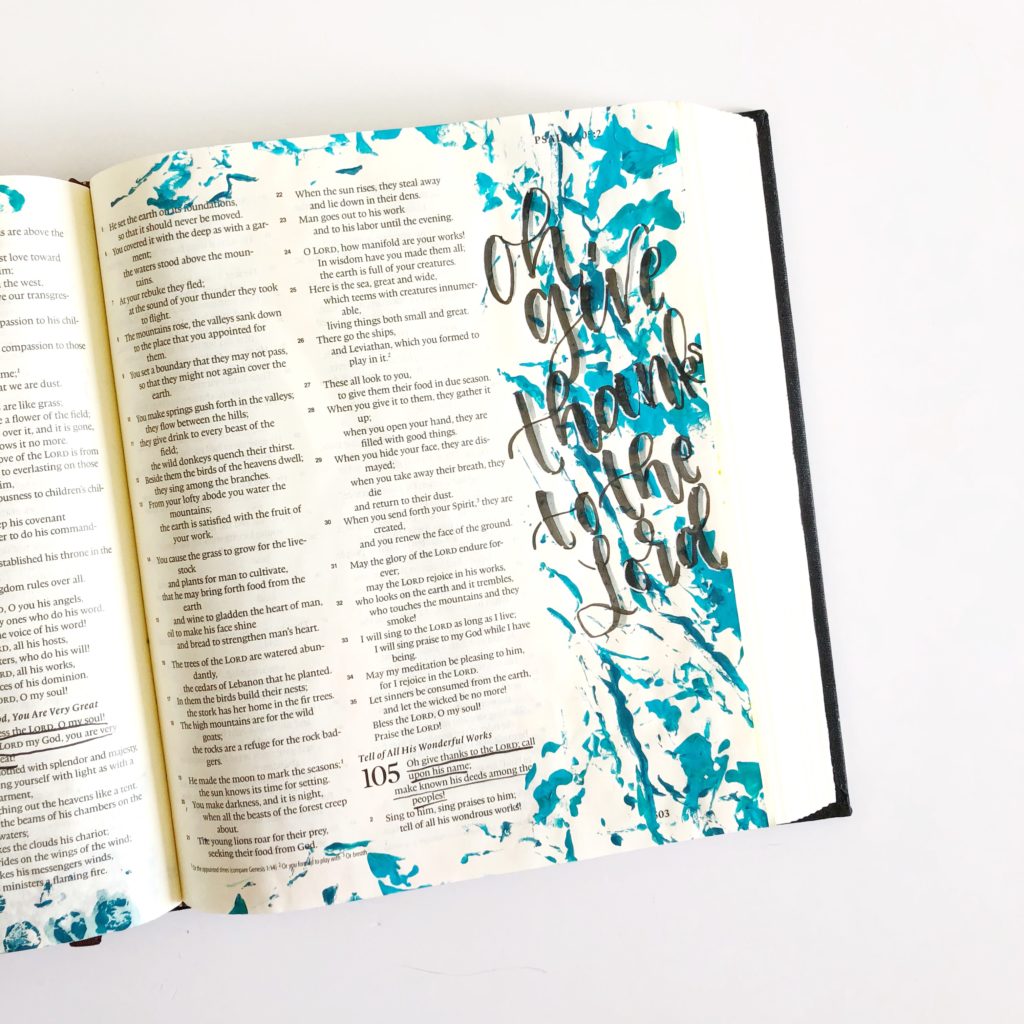 s are above the
st love toward
im;
the west.
ve our transgres-
passion to his chil-
compassion to those
me;¹
at we are dust.
are like grass;
e a flower of the field;
over it, and it is gone,
ows it no more.
ove of the LORD is from
to everlasting on those
im,
ousness to children's chil-
ep his covenant
er to do his command-
stablished his throne in the
gdom rules over all.
D, O you his angels,
y ones who do his word,
e voice of his word!
RD, all his hosts,
ters, who do his will!
RD, all his works,
ces of his dominion.
ORD, O my soul!
od, You Are Very Great
ess the LORD, O my soul!
LORD my God, you are very
eat!
othed with splendor and majesty,
ng yourself with light as with a
arment,
ching out the heavens like a tent.
the beams of his chambers on the
waters;
kes the clouds his chariot;
rides on the wings of the wind;
kes his messengers winds,
ministers a flaming fire.
5 He set the earth on its foundations,
so that it should never be moved.
6 You covered it with the deep as with a gar-
ment;
the waters stood above the moun-
tains.
7 At your rebuke they fled;
at the sound of your thunder they took
to flight.
8 The mountains rose, the valleys sank down
to the place that you appointed for
them.
9 You set a boundary that they may not pass,
so that they might not again cover the
earth.
10 You make springs gush forth in the valleys;
they flow between the hills;
11 they give drink to every beast of the
field;
the wild donkeys quench their thirst.
12 Beside them the birds of the heavens dwell;
they sing among the branches.
13 From your lofty abode you water the
mountains;
the earth is satisfied with the fruit of
your work.
14 You cause the grass to grow for the live-
stock
and plants for man to cultivate,
that he may bring forth food from the
earth
15 and wine to gladden the heart of man,
oil to make his face shine
and bread to strengthen man's heart.
16 The trees of the LORD are watered abun-
dantly,
the cedars of Lebanon that he planted.
17 In them the birds build their nests;
the stork has her home in the fir trees.
18 The high mountains are for the wild
goats;
the rocks are a refuge for the rock bad-
gers.
19 He made the moon to mark the seasons;¹
the sun knows its time for setting.
20 You make darkness, and it is night,
when all the beasts of the forest creep
about.
21 The young lions roar for their prey,
seeking their food from God.
22 When the sun rises, they steal away
and lie down in their dens.
23 Man goes out to his work
and to his labor until the evening.
24 O LORD, how manifold are your works!
In wisdom have you made them all;
the earth is full of your creatures.
25 Here is the sea, great and wide,
which teems with creatures innumer-
able,
living things both small and great.
26 There go the ships,
and Leviathan, which you formed to
play in it.²
27 These all look to you,
to give them their food in due season.
28 When you give it to them, they gather it
up;
when you open your hand, they are
filled with good things.
29 When you hide your face, they are dis-
mayed;
when you take away their breath, they
die
and return to their dust.
30 When you send forth your Spirit,³ they are
created,
and you renew the face of the ground.
31 May the glory of the LORD endure for-
ever;
may the LORD rejoice in his works,
32 who looks on the earth and it trembles,
who touches the mountains and they
smoke!
33 I will sing to the LORD as long as I live;
I will sing praise to my God while I have
being.
34 May my meditation be pleasing to him,
for I rejoice in the LORD.
35 Let sinners be consumed from the earth,
and let the wicked be no more!
Bless the LORD, O my soul!
Praise the LORD!
Tell of All His Wonderful Works
105 Oh give thanks to the LORD; call
upon his name;
make known his deeds among the
peoples!
2 Sing to him, sing praises to him;
tell of all his wondrous works!
¹ Or the appointed times (compare Genesis 1:14) ² Or you formed to play with ³ Or breath
oh
give
thanks
to the
Lord